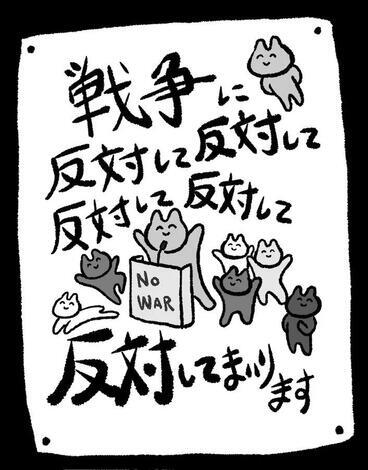 戦争に
反対して反対して
反対して反対して
NO
WAR
反対してまいります